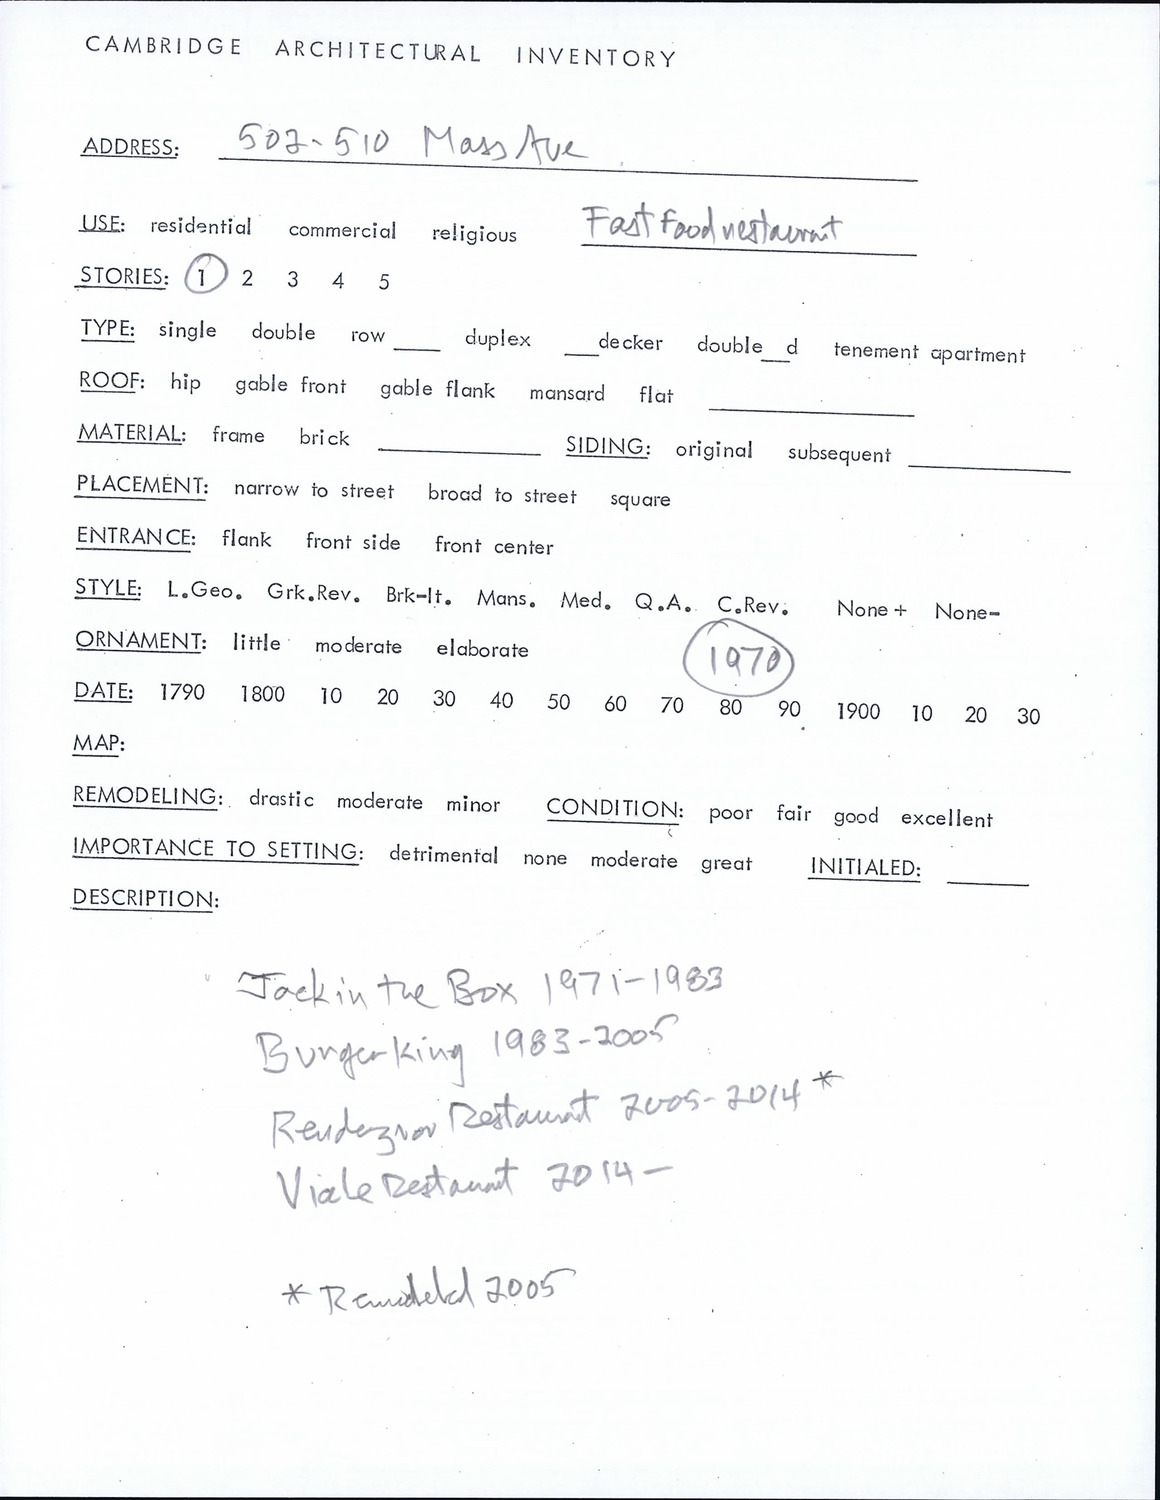 CAMBRIDGE ARCHITECTURAL INVENTORY
ADDRESS: 502-510 Mass Ave
USE: residential commercial religious Fast Food restaurant
STORIES: 1 2 3 4 5
TYPE: single double row ____ duplex ___decker double__d tenement apartment
ROOF: hip gable front gable flank mansard flat ____
MATERIAL: frame brick ____ SIDING: original subsequent ____
PLACEMENT: narrow to street broad to street square
ENTRANCE: flank front side front center
STYLE: L.Geo. Grk.Rev. Brk-It. Mans. Med. Q.A. C.Rev. None+ None-
ORNAMENT: little moderate elaborate 1970
DATE: 1790 1800 10 20 30 40 50 60 70 80 90 1900 10 20 30
MAP:
REMODELING: drastic moderate minor CONDITION: poor fair good excellent
IMPORTANCE TO SETTING: detrimental none moderate great INITIALED: ____
DESCRIPTION:
Jack in the Box 1971-1983
Burger King 1983-2005
Rendezvous Restaurant 2005-2014 *
Viale Restaurant 2014-
* Remodeled 2005